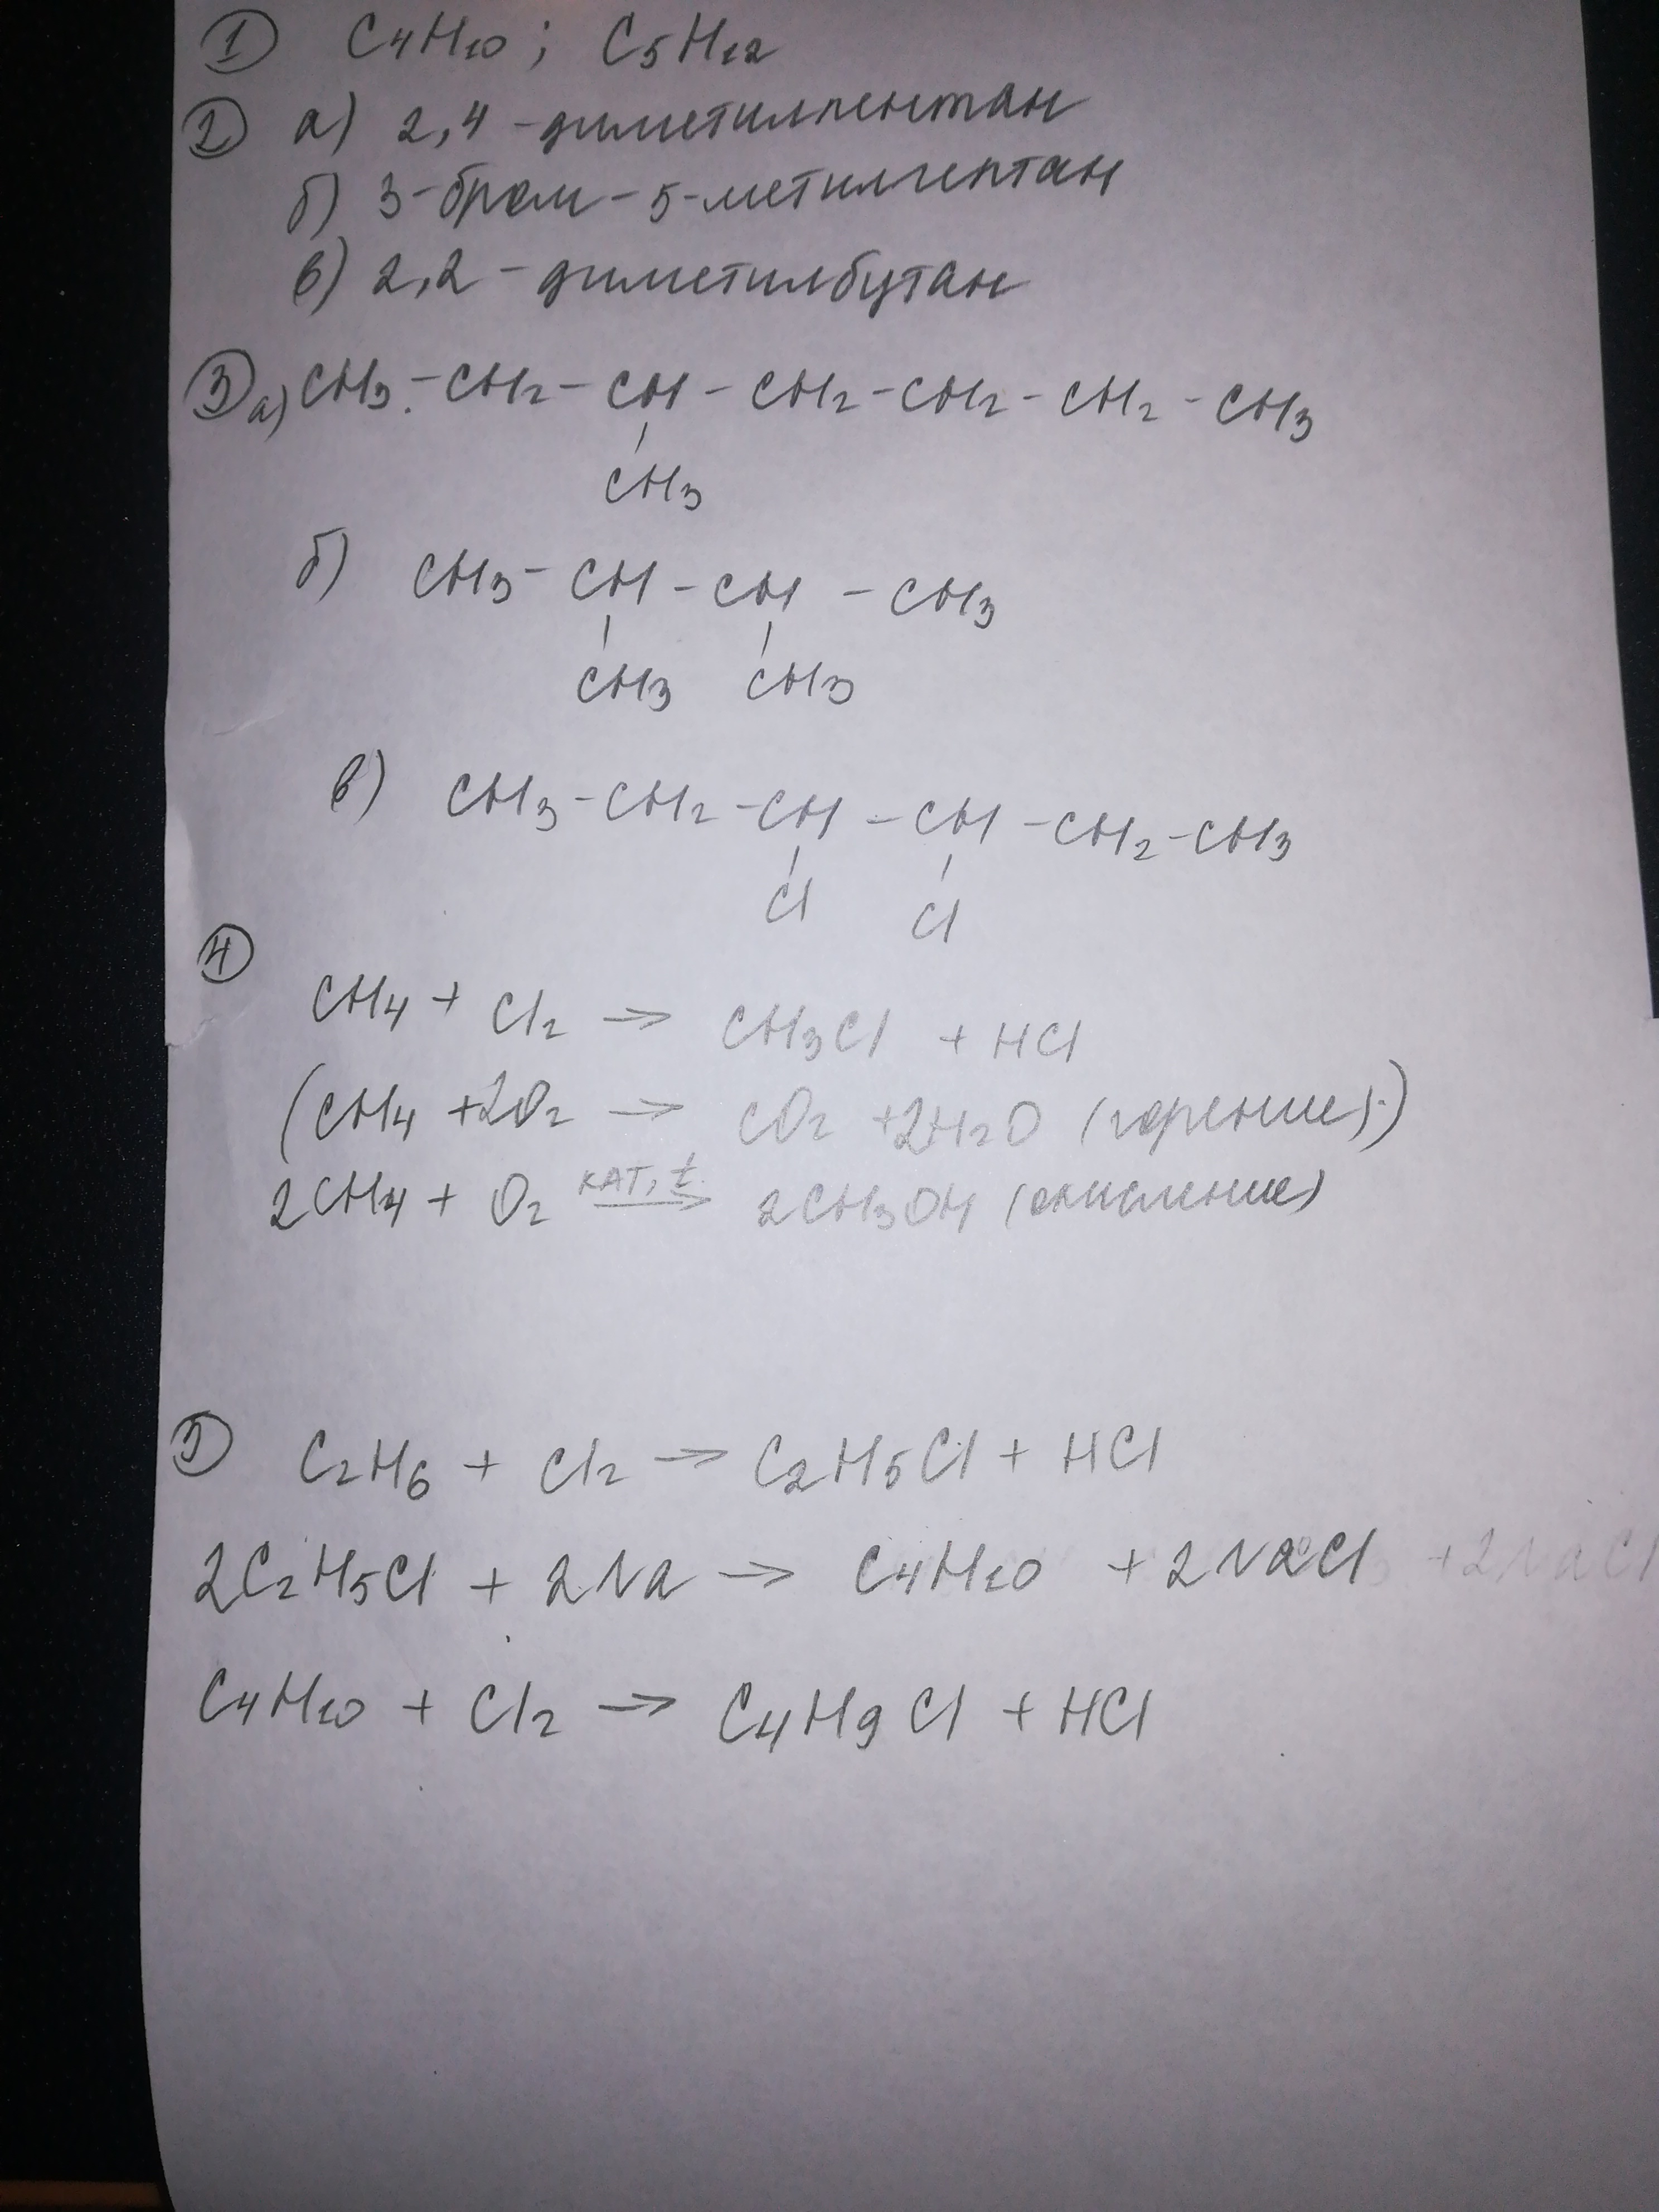 ① C4H10; C5H12
② а) 2,4-диметилпентан
б) 3-бром-5-метилгептан
в) 2,2-диметилбутан
③ а) CH3-CH2-CH-CH2-CH2-CH2-CH3
CH3
б) CH3-CH-CH-CH3
CH3 CH3
в) CH3-CH2-CH-CH-CH2-CH3
Cl Cl
④
CH4 + Cl2 → CH3Cl + HCl
(CH4 +2O2 → CO2 +2H2O (горение).)
2CH4 + O2 кат, t. → 2CH3OH (окисление)
⑤ C2H6 + Cl2 → C2H5Cl + HCl
2C2H5Cl + 2Na → C4H10 + 2NaCl +2NaCl
C4H10 + Cl2 → C4H9Cl + HCl